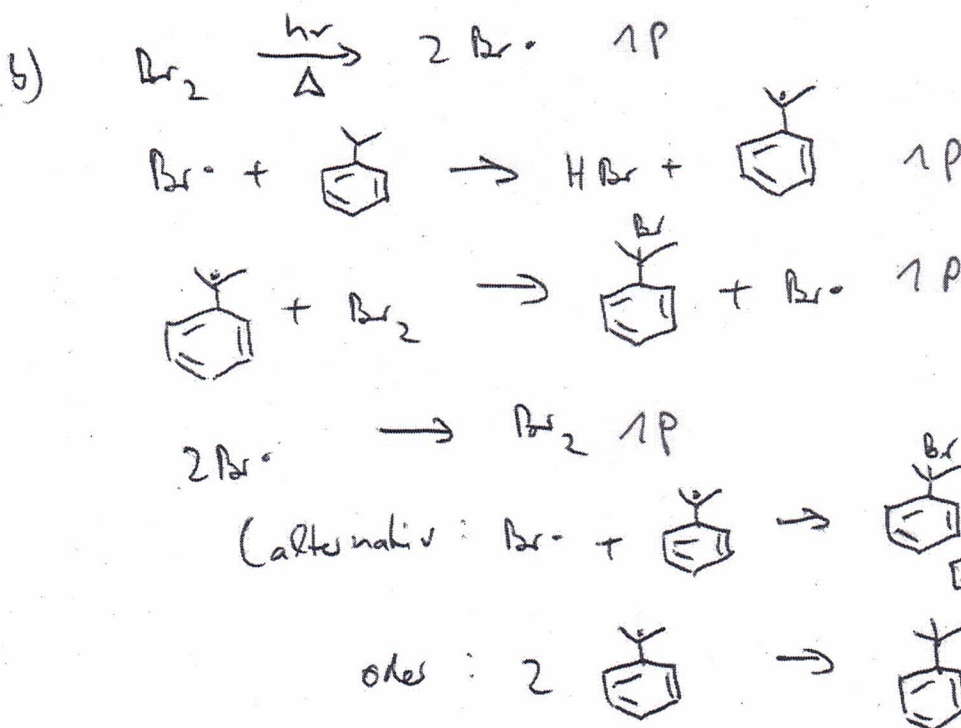 b) Br₂ hν → Δ 2 Br• 1P
Br• + → HBr + 1P
+ Br₂ → Br + Br• 1P
2Br• → Br₂ 1P
(alternativ : Br• + → Br
oder : 2 →